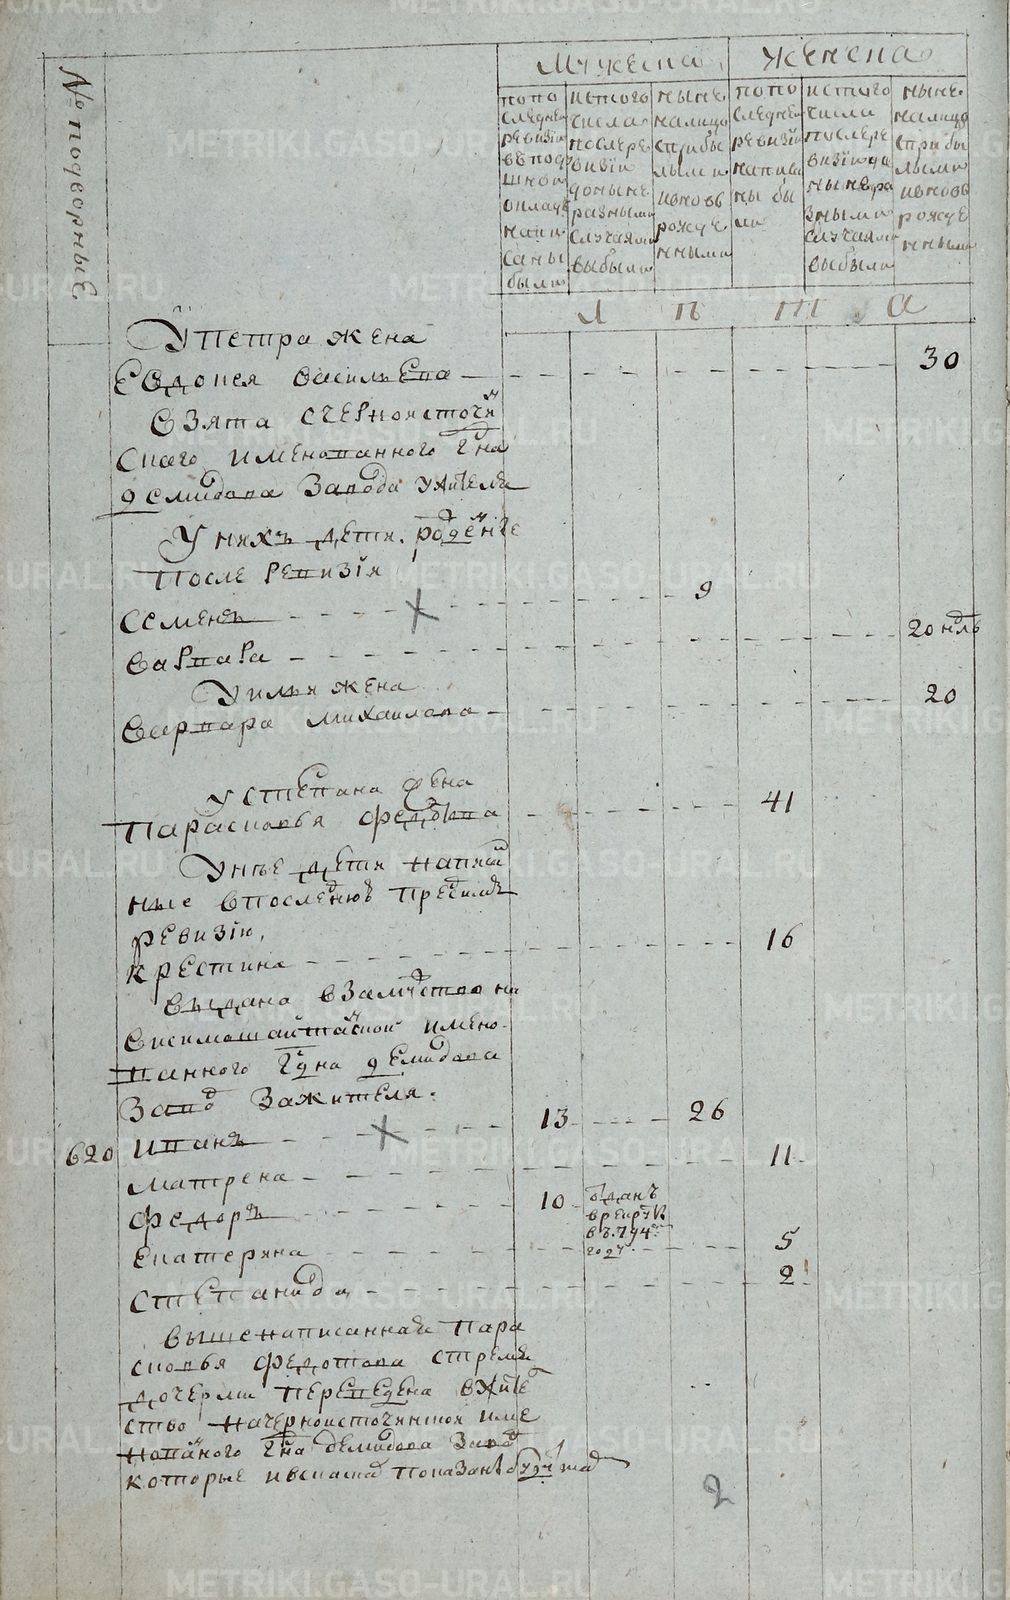 № подворные
Мужеска
Женска
по по
следней
ревизіи
в под
ушном
окладе
напи
саны
были
ис того
числа
после ре
визіи
до ныне
разными
случаями
выбыли
ныне
на лицо
с прибы
лыми
и вновь
рожде
нными
по по
следней
ревизіи
написа
ны бы
ли
ис того
числа
после ре
визіи до
ныне ра
зными
случаями
выбыли
ныне
на лицо
с прибы
лыми
и вновь
рожде
нными
Л е т а
У петра жена
Евдокея васильева 30
Взята с черноисточин
скаго именованного Гдна
демидова завода жителя
У них дети рожденые
после ревизіи
Семенъ 9
варвара 20 ндль
У ильи жена
варвара михаилова 20
У степана жена
парасковья федотова 41
У нее дети написан
ные в последнюю пред сим
ревизію,
крестина 16
выдана в замужство на
висимошайтанской имено
ванного Гдна демидова
завод за жителя.
620 иванъ 13 26
матрена 11
федоръ 10 отданъ
в рекруты
въ 794м
году
Екатерина 5
степанида 2
вышенаписанная пара
сковья федотова с тремя
дочерми переведена в жите
ство на черноисточинской име
нованого Гдна демидова завод
которые и в скаске показаны будут тад
2
METRIKI.GASO-URAL.RU